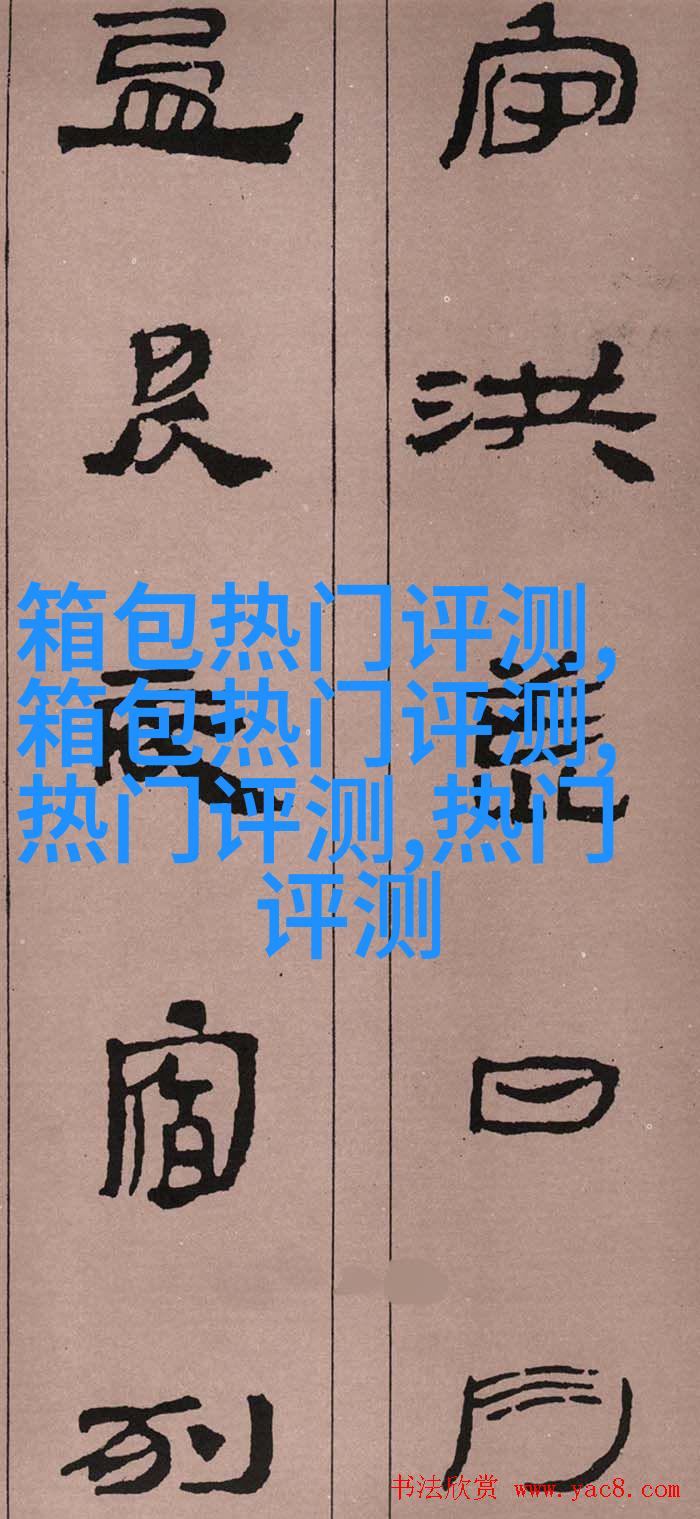 宇洪荒日月
盈昃辰宿列
箱包热门评测,
箱包热门评测,
热门评测,热门
评测
书法欣赏 www.yac8.com